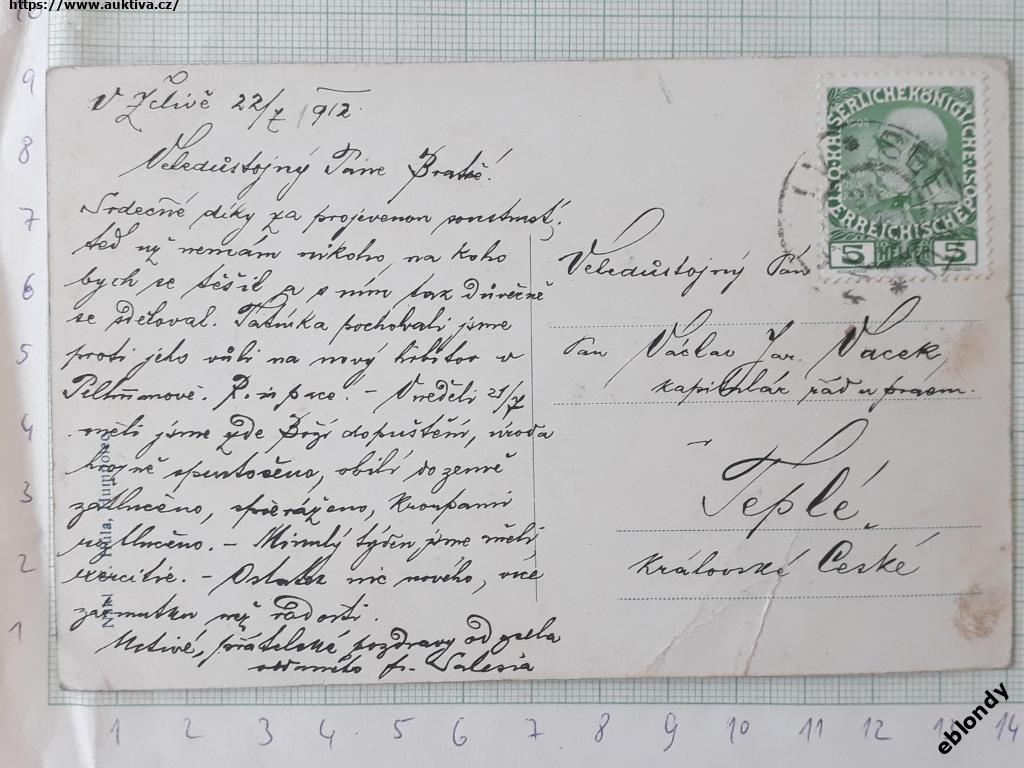 https://www.auktiva.cz/
V Želivě 22/7 1912.
Veledůstojný Pane Bratře!
Srdečné díky za projevenou soustrast,
teď už nemám nikoho, na koho
bych se těšil a s ním tak důvěrně
se sděloval. Tatínka pochovali jsme
proti jeho vůli na nový hřbitov v
R. i. pace. – V neděli 21/7
měli jsme zde Boží dopuštění, úroda
hrozně spustošena, obilí do země
zatlučeno, zpřeráženo, kroupami
vytlučeno. – Minulý týden jsme měli
exercitie. – Ostatek nic nového, více
zármutku než radosti.
Uctivé, přátelské pozdravy od zcela
oddaného fr. Salesia
Veledůstojný Pán
Pan Václav Jar. Vacek,
kapitulár řádu praem.
v Teplé,
Království České
KAISERLICHE KÖNIGLICHE
ÖSTERREICHISCHE POST
5 HELLER 5
Humpolec
9
8
7
6
5
4
3
2
1
1 2 3 4 5 6 7 8 9 10 11 12 13 14
eblondy